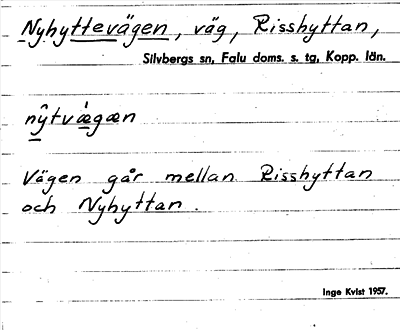 Nyhyttevägen, väg, Risshyttan,
Silvbergs sn, Falu doms. s. tg, Kopp. län.
nŷtvæ̀gæn
Vägen går mellan Risshyttan
och Nyhyttan.
Inge Kvist 1957.